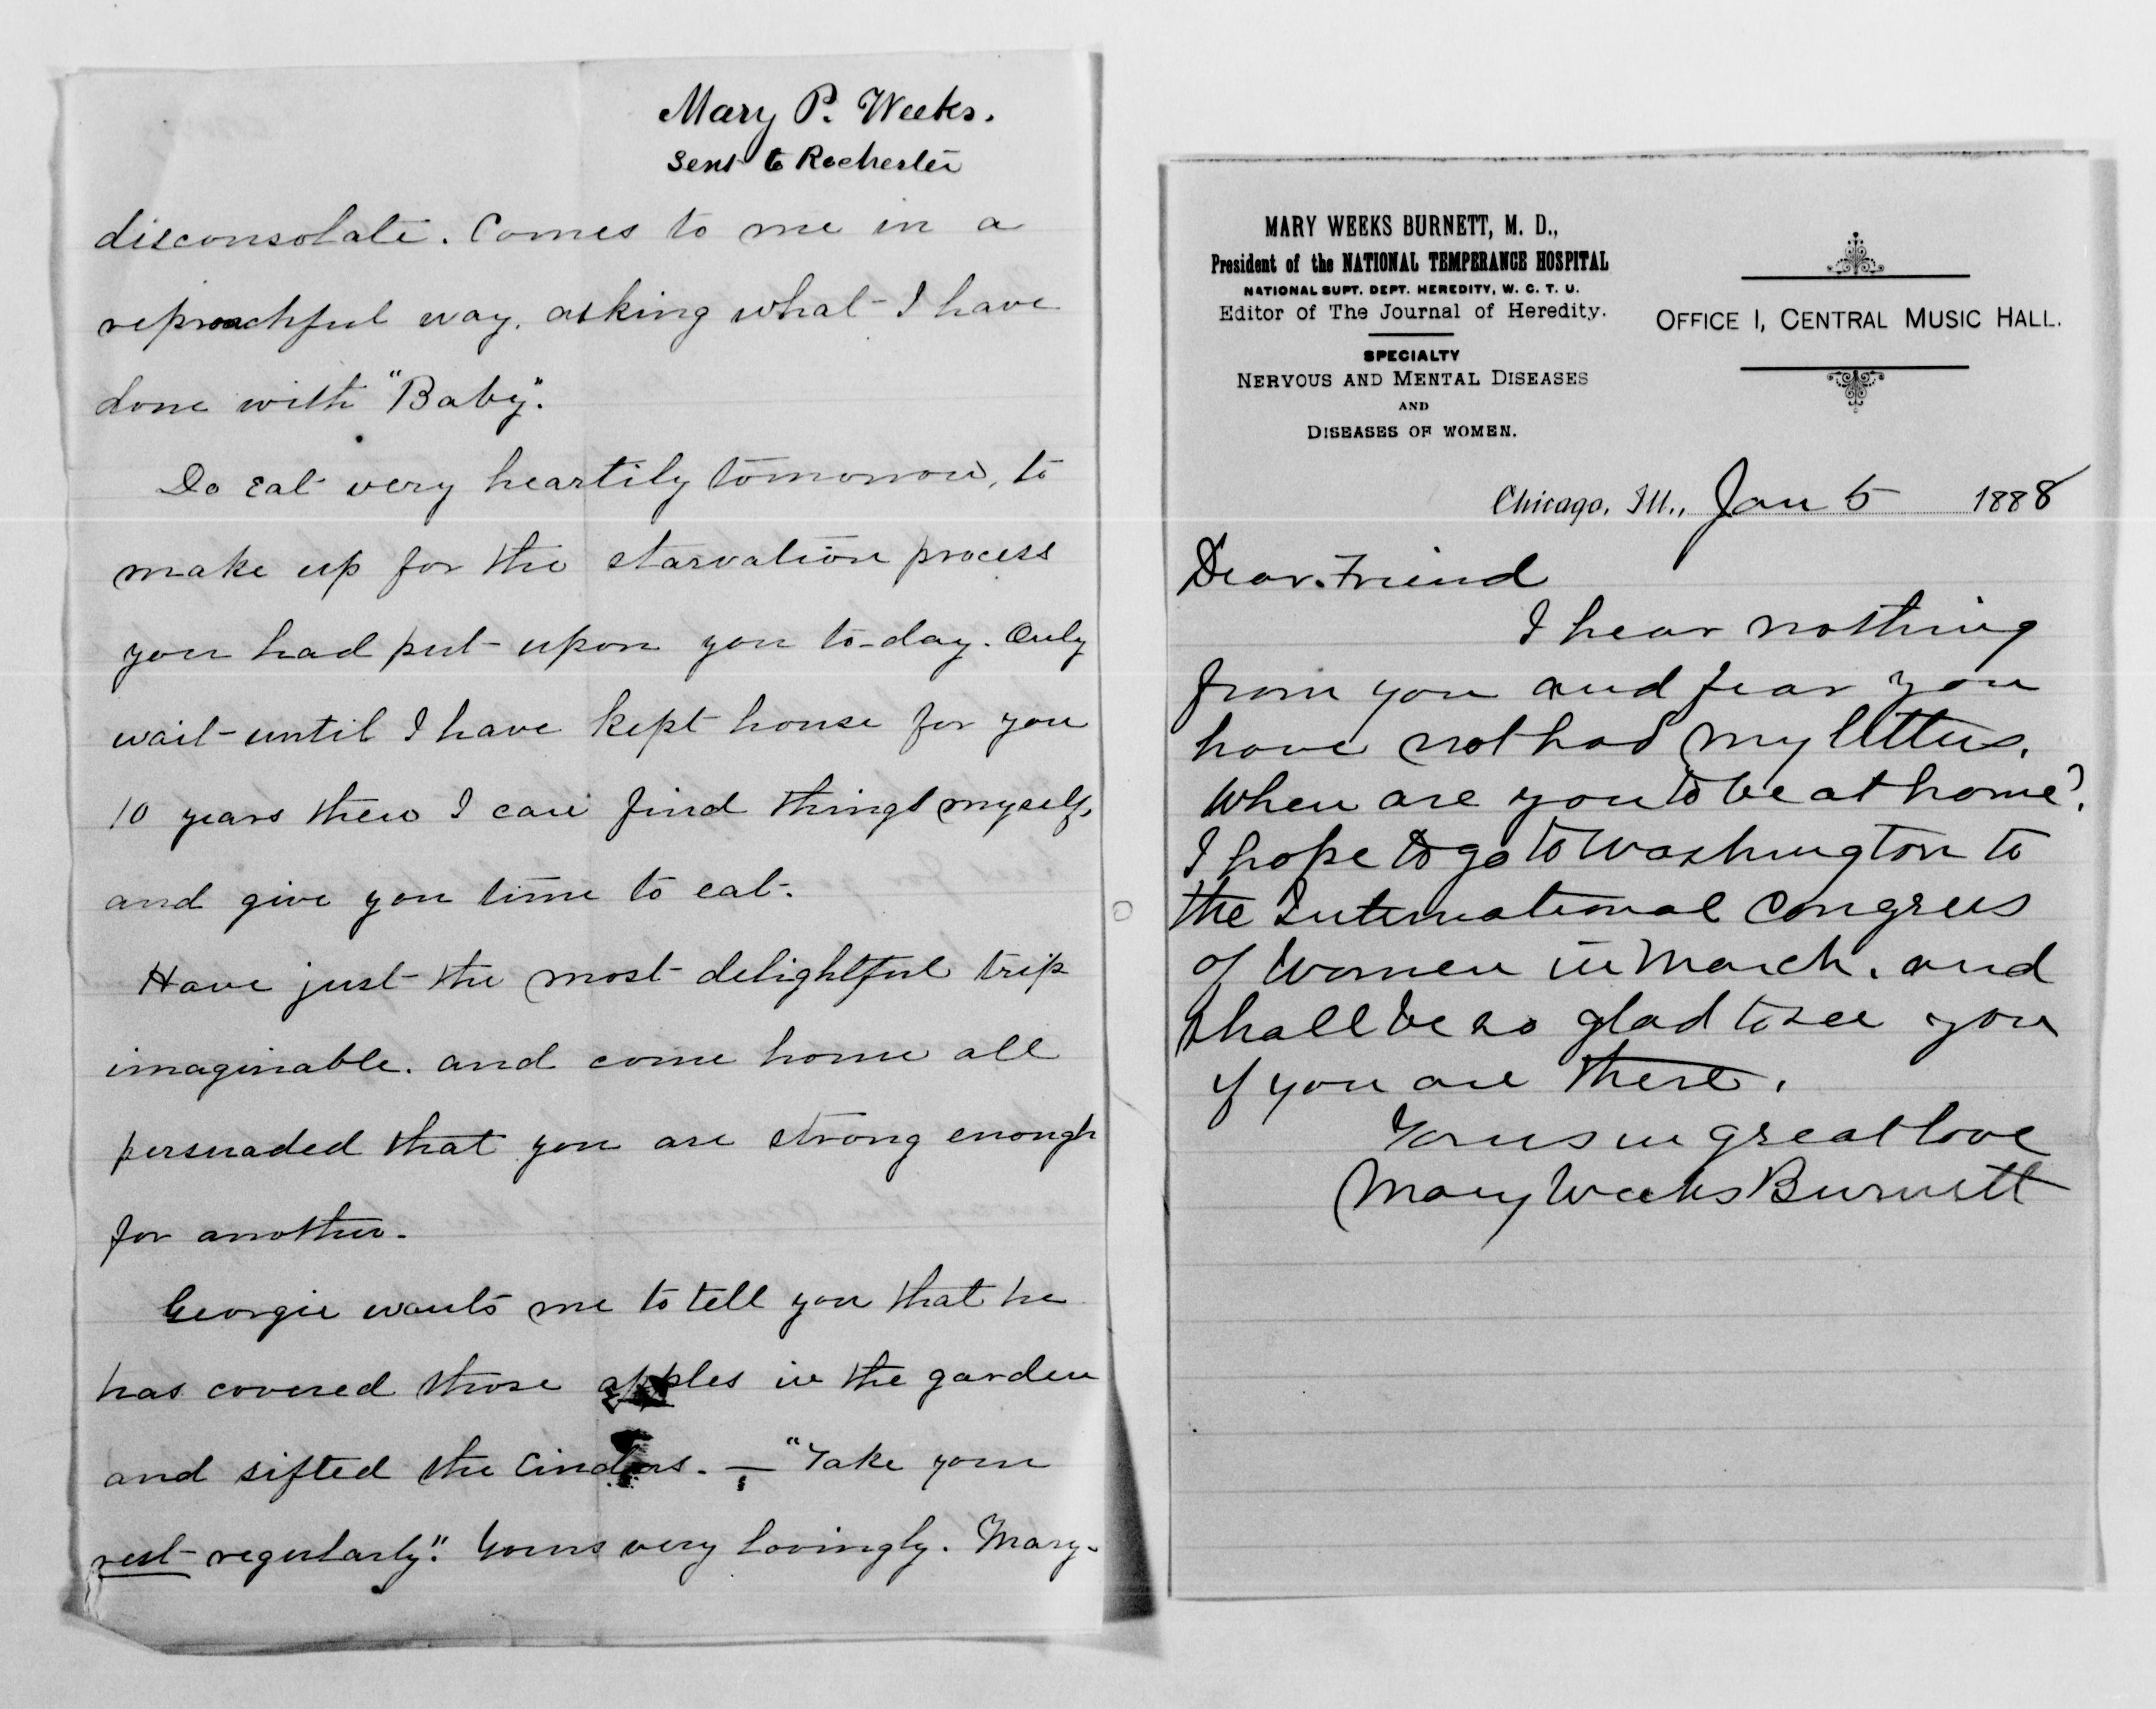 Mary P. Weeks.
Sent to Rochester
disconsolate. Comes to me in a
reproachful way, asking what I have
done with "Baby".
Do eat very heartily tomorrow, to
make up for the starvation process
you had put upon you to-day. Only
wait until I have kept house for you
10 years then I can find things myself,
and give you time to eat.
Have just the most delightful trip
imaginable. and come home all
persuaded that you are strong enough
for another.
Georgie wants me to tell you that he
has covered those apples in the garden
and sifted the cinders. — "Take your
rest regularly". Yours very lovingly. Mary.
MARY WEEKS BURNETT, M. D.,
President of the NATIONAL TEMPERANCE HOSPITAL
NATIONAL SUPT. DEPT. HEREDITY, W. C. T. U.
Editor of The Journal of Heredity.
SPECIALTY
NERVOUS AND MENTAL DISEASES
AND
DISEASES OF WOMEN.
OFFICE 1, CENTRAL MUSIC HALL.
Chicago, Ill., Jan 5 1888
Dear Friend
I hear nothing
from you and fear you
have not had my letters.
When are you to be at home?
I hope to go to Washington to
the International Congress
of Women in March. and
shall be so glad to see you
if you are there.
Yours in great love
Mary Weeks Burnett